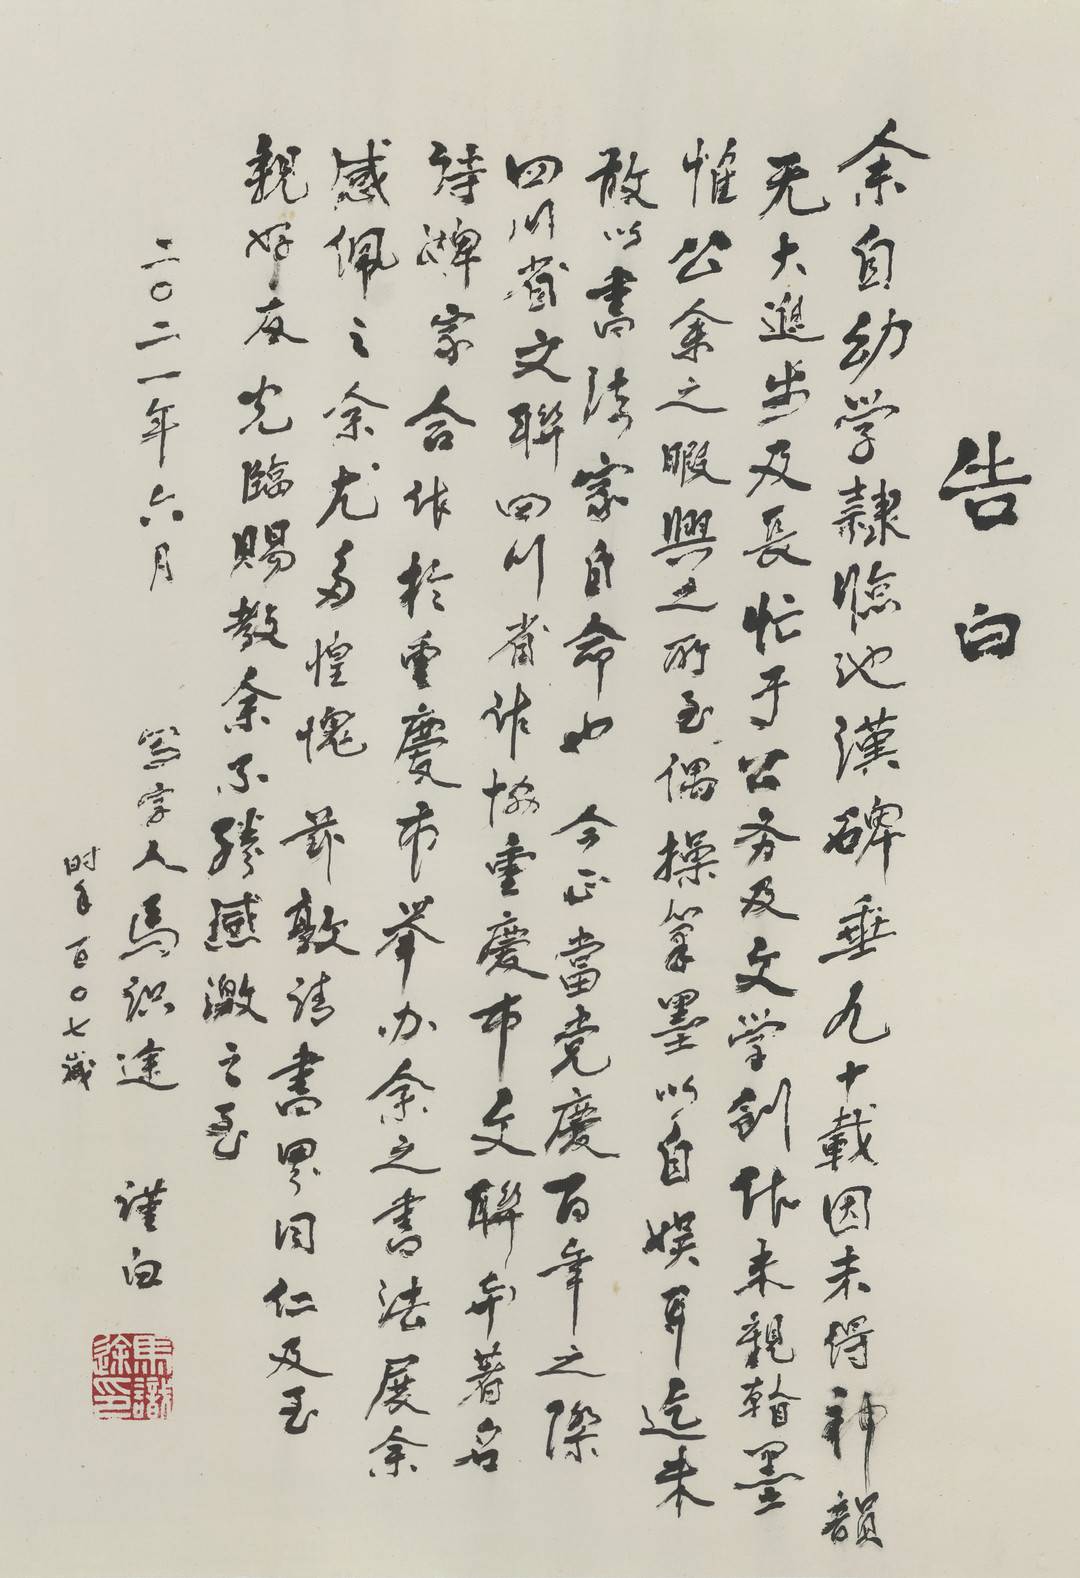 告白
余自幼学隸臨池漢碑垂九十載因未得神韻
无大進步及長忙于公务及文学创作未親翰墨
惟公余之暇興之所至偶操笔墨以自娱耳迄未
敢以書法家自命也今正當党慶百年之際
四川省文聯四川省作協重慶市文聯与著名
詩碑家合作於重慶市举办余之書法展余
感佩之余尤多惶愧兹敦请書界同仁及至
親好友光臨賜教余不勝感激之至
二〇二一年六月
寫字人馬识途谨白
时年百〇七歲
馬識途印